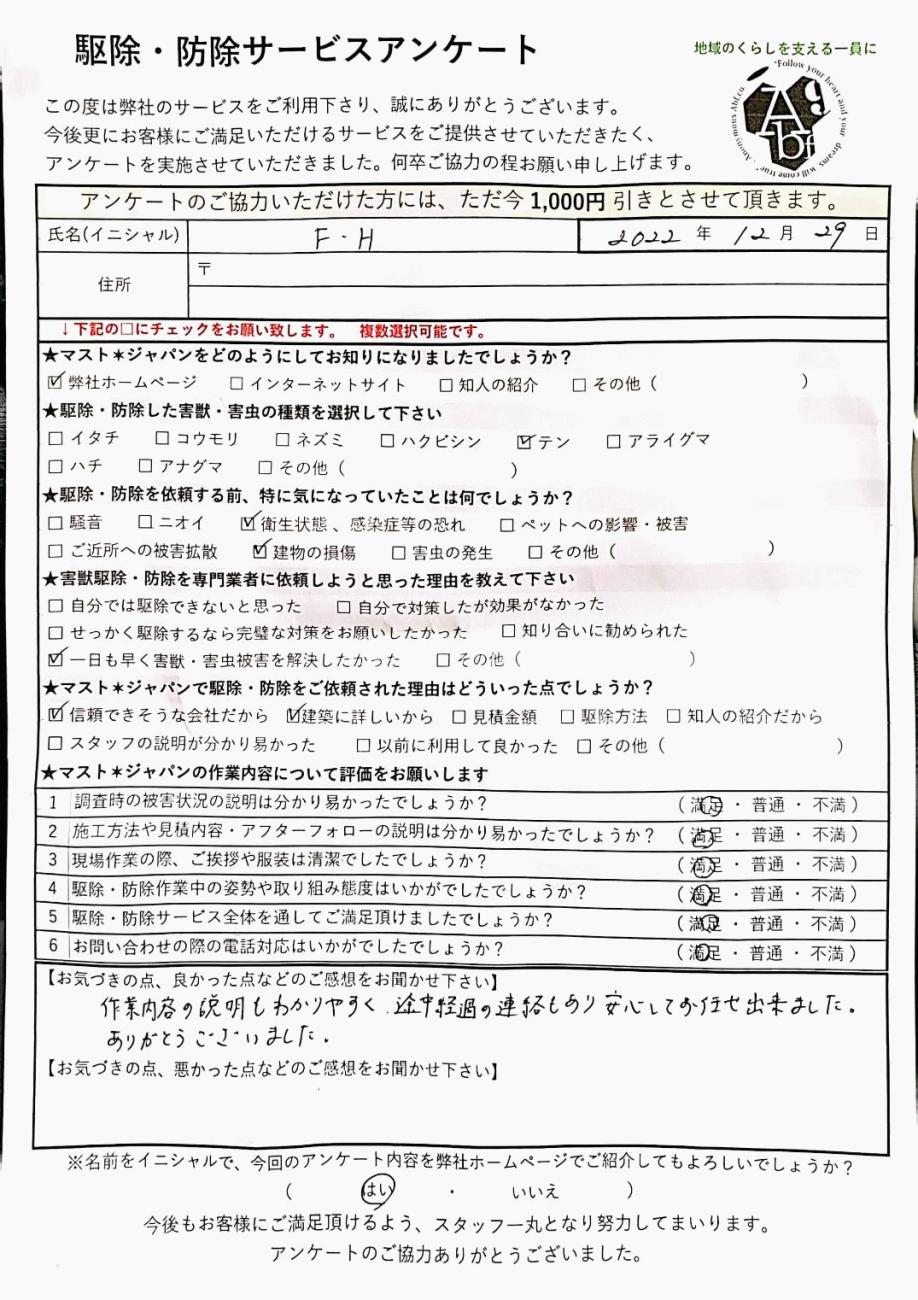 駆除・防除サービスアンケート
地域のくらしを支える一員に
"Follow your heart and your dreams will come true" Anonymous Abf.co
A9bf
この度は弊社のサービスをご利用下さり、誠にありがとうございます。
今後更にお客様にご満足いただけるサービスをご提供させていただきたく、
アンケートを実施させていただきました。何卒ご協力の程お願い申し上げます。
アンケートのご協力いただけた方には、ただ今 1,000円 引きとさせて頂きます。
氏名(イニシャル) F・H 2022 年 12 月 29 日
住所 〒
↓下記の□にチェックをお願い致します。 複数選択可能です。
★マスト＊ジャパンをどのようにしてお知りになりましたでしょうか？
☑弊社ホームページ □インターネットサイト □知人の紹介 □その他（ ）
★駆除・防除した害獣・害虫の種類を選択して下さい
□イタチ □コウモリ □ネズミ □ハクビシン ☑テン □アライグマ
□ハチ □アナグマ □その他（ ）
★駆除・防除を依頼する前、特に気になっていたことは何でしょうか？
□騒音 □ニオイ ☑衛生状態、感染症等の恐れ □ペットへの影響・被害
□ご近所への被害拡散 ☑建物の損傷 □害虫の発生 □その他（ ）
★害獣駆除・防除を専門業者に依頼しようと思った理由を教えて下さい
□自分では駆除できないと思った □自分で対策したが効果がなかった
□せっかく駆除するなら完璧な対策をお願いしたかった □知り合いに勧められた
☑一日も早く害獣・害虫被害を解決したかった □その他（ ）
★マスト＊ジャパンで駆除・防除をご依頼された理由はどういった点でしょうか？
☑信頼できそうな会社だから ☑建築に詳しいから □見積金額 □駆除方法 □知人の紹介だから
□スタッフの説明が分かり易かった □以前に利用して良かった □その他（ ）
★マスト＊ジャパンの作業内容について評価をお願いします
1 調査時の被害状況の説明は分かり易かったでしょうか？ （満足・普通・不満）
2 施工方法や見積内容・アフターフォローの説明は分かり易かったでしょうか？ （満足・普通・不満）
3 現場作業の際、ご挨拶や服装は清潔でしたでしょうか？ （満足・普通・不満）
4 駆除・防除作業中の姿勢や取り組み態度はいかがでしたでしょうか？ （満足・普通・不満）
5 駆除・防除サービス全体を通してご満足頂けましたでしょうか？ （満足・普通・不満）
6 お問い合わせの際の電話対応はいかがでしたでしょうか？ （満足・普通・不満）
【お気づきの点、良かった点などのご感想をお聞かせ下さい】
作業内容の説明もわかりやすく、途中経過の連絡もあり安心してお任せ出来ました。
ありがとうございました。
【お気づきの点、悪かった点などのご感想をお聞かせ下さい】
※名前をイニシャルで、今回のアンケート内容を弊社ホームページでご紹介してもよろしいでしょうか？
（ はい ・ いいえ ）
今後もお客様にご満足頂けるよう、スタッフ一丸となり努力してまいります。
アンケートのご協力ありがとうございました。